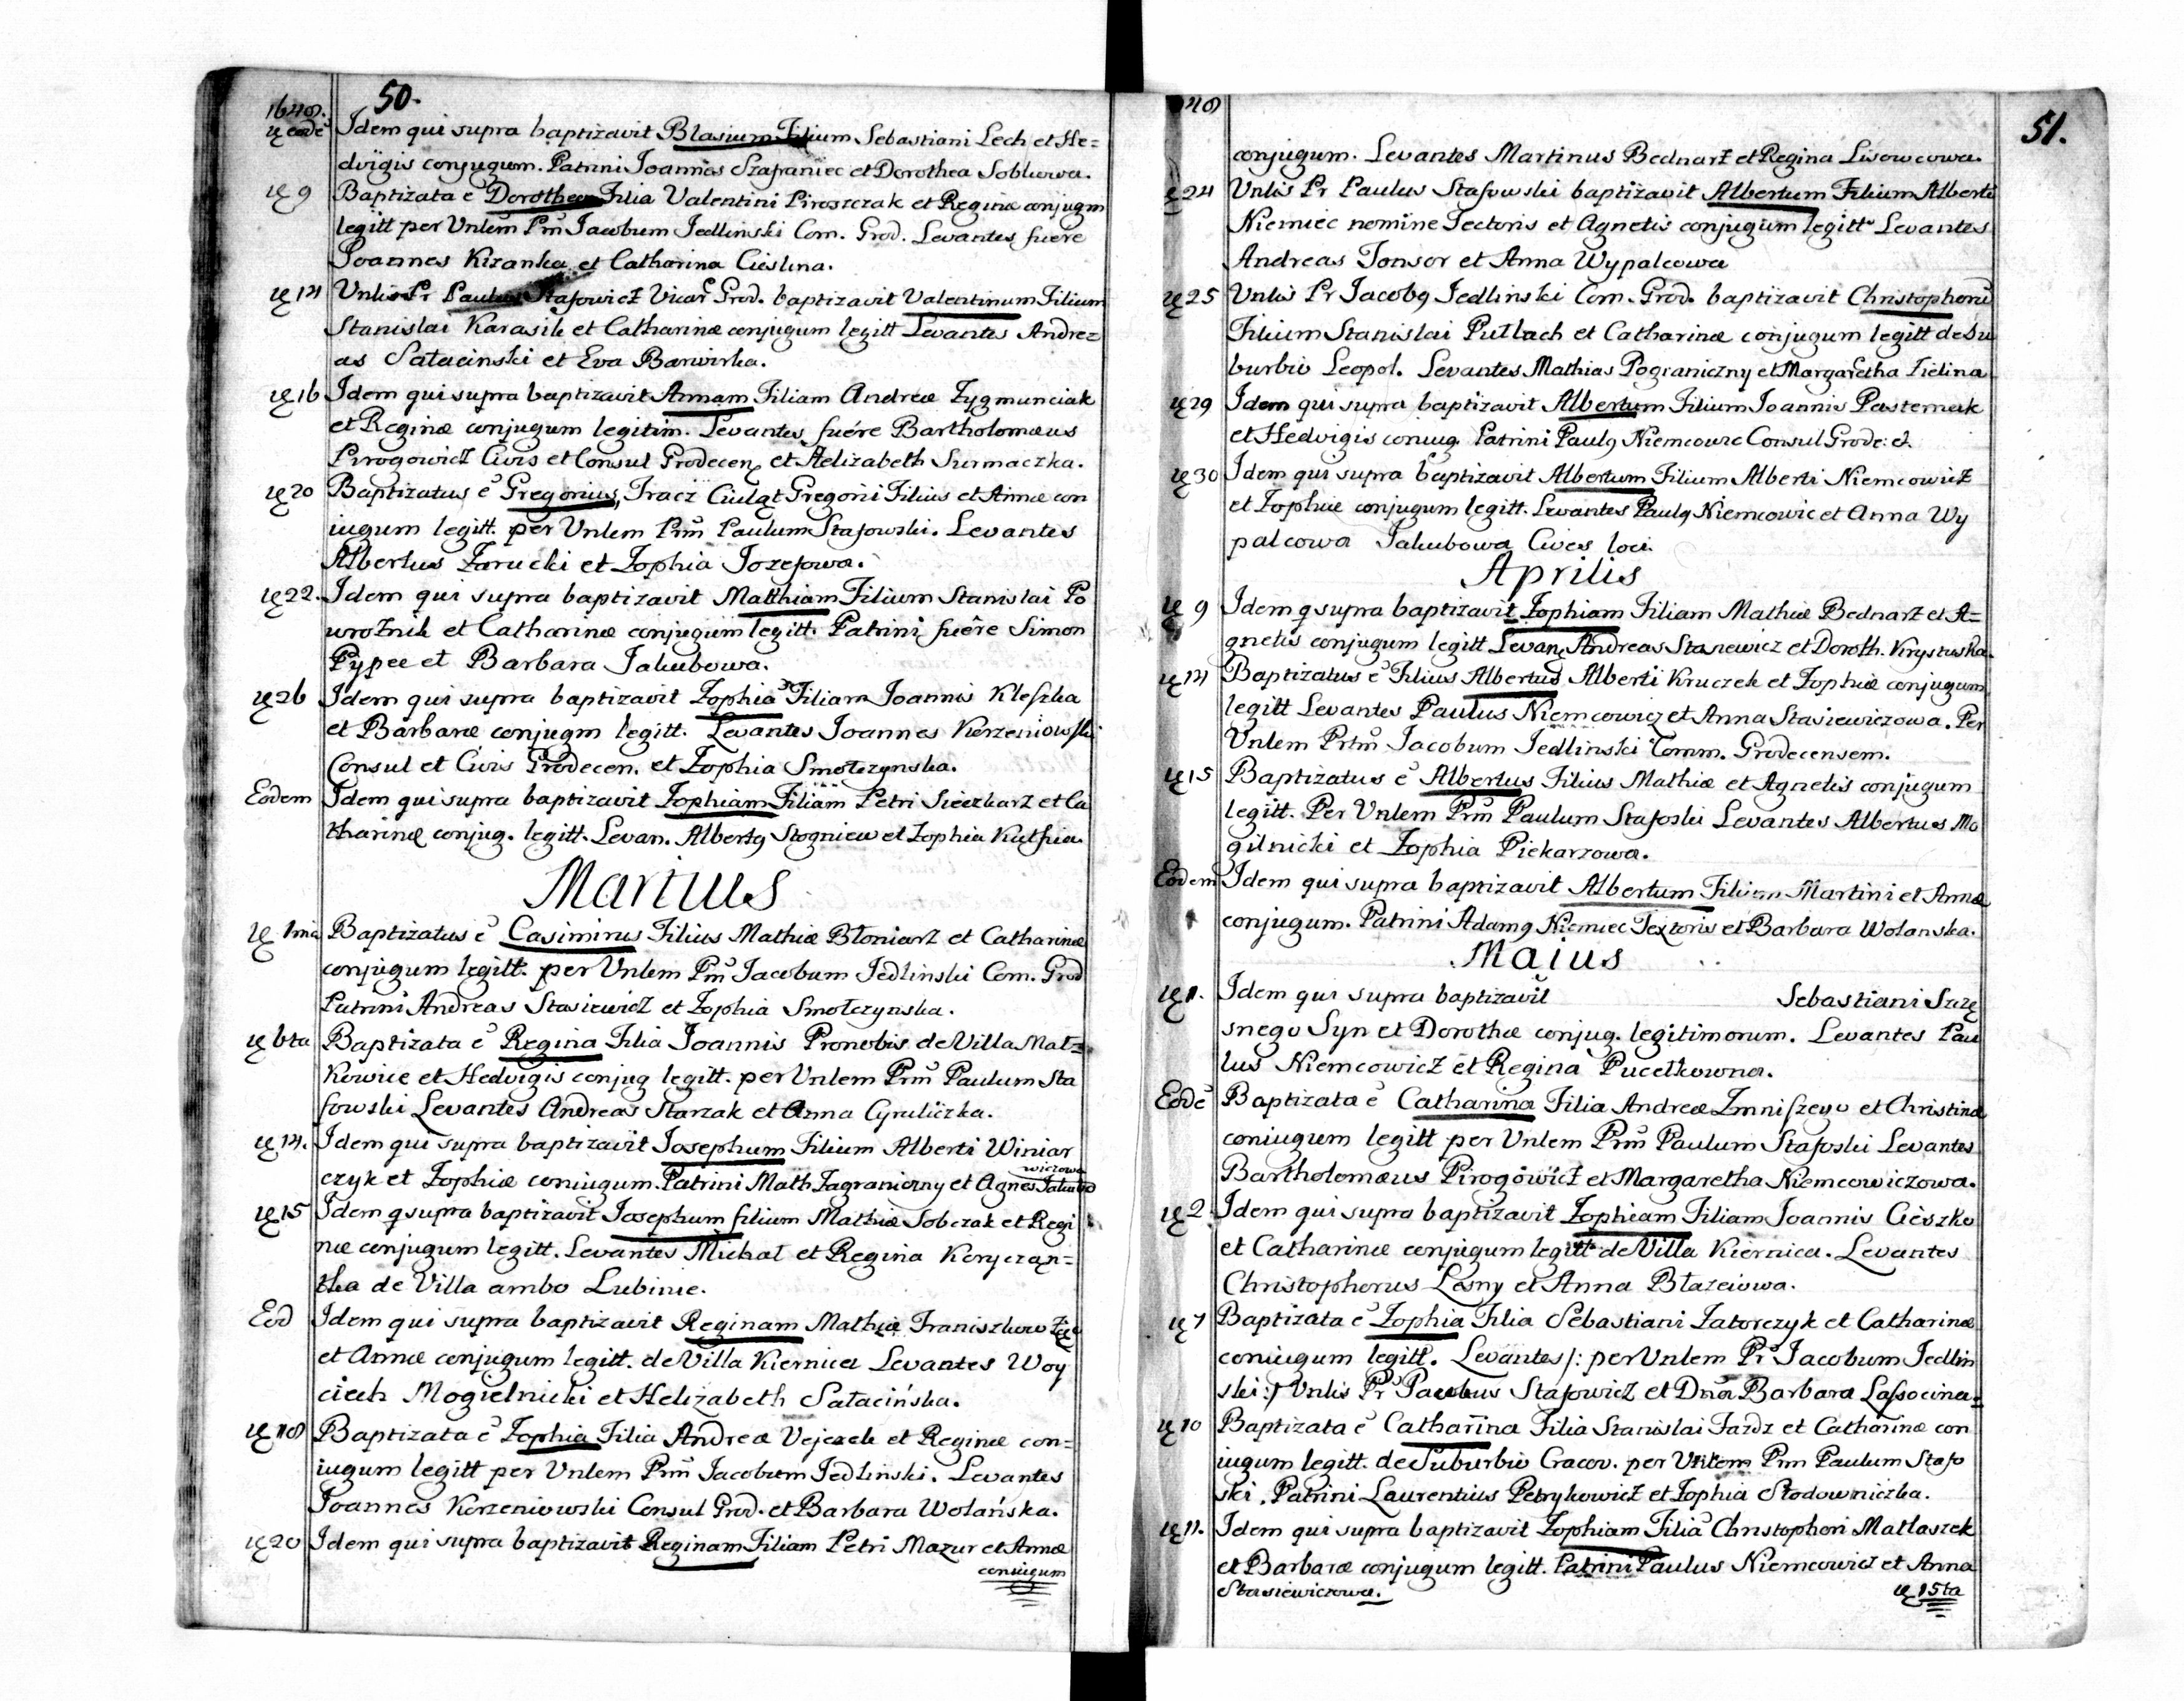 1648. 50.
ię eodē Idem qui supra baptizavit Blasium Filium Sebastiani Lech et He=
dvigis conjugum. Patrini Joannes Szafraniec et Dorothea Soblowa.
ię 9 Baptizata ē Dorothea Filia Valentini Piroszczak et Reginæ conjugm
legitt per Vnlem Prm̄ Jacobum Jedlinski Com. Grod. Levantes fuere
Joannes Kizanka et Catharina Cieślina.
ię 14 Vnlis Pr Paulus Stafowicz Vicar Grod. baptizavit Valentinum Filium
Stanislai Karasik et Catharinæ conjugum legitt Levantes Andre=
as Sałacinski et Eva Barwirka.
ię 16 Idem qui supra baptizavit Annam Filiam Andreæ Zygmunciak
et Reginæ conjugum legitim. Levantes fuére Bartholomæus
Pirogowicz Civis et Consul Grodecen et Aelizabeth Surmaczka.
ię 20 Baptizatus ē Gregorius, Tracz Ciuląt Gregorii Filius et Annæ con
iugum legitt. per Vnlem Prm̄ Paulum Stafowski. Levantes
Albertus Zarucki et Zophia Jozefowa.
ię 22. Idem qui supra baptizavit Matthiam Filium Stanislai Po
wroźnik et Catharinæ conjugum legitt. Patrini fuêre Simon
Pypeć et Barbara Jakubowa.
ię 26 Idem qui supra baptizavit Zophiā Filiam Joannis Kleszka
et Barbaræ conjugm legitt. Levantes Joannes Korzeniowski
Consul et Civis Grodecen. et Zophia Smołczynska.
Eodem Idem qui supra baptizavit Zophiam Filiam Petri Sieczkarz et Ca
tharinæ conjug. legitt. Levan. Albertg Stogniew et Zophia Kutsia.
Martius
ię 1ma Baptizatus ē Casimirus Filius Mathiæ Błoniarz et Catharinæ
conjugum legitt. per Vnlem Prm̄ Jacobum Jedlinski Com. Grod
Patrini Andreas Stasiewicz et Zophia Smołczynska.
ię 6ta Baptizata ē Regina Filia Joannis Pronobis de Villa Mał=
kowice et Hedvigis conjug legitt. per Vnlem Prm̄ Paulum Sta
fowski Levantes Andreas Starzak et Anna Cyruliczka.
ię 14. Idem qui supra baptizavit Josephum Filium Alberti Winiar
wiczowa
czyk et Zophiæ coniugum. Patrini Math Zagraniczny et Agnes Jakubo
ię 15 Idem q supra baptizavit Josephum filium Mathiæ Sobczak et Regi
næ conjugum legitt. Levantes Michał et Regina Koryczan=
tka de Villa ambo Lubinie.
Eod Idem qui supra baptizavit Reginam Mathiæ Franiszków Zięć
et Annæ conjugum legitt. de Villa Kiernica Levantes Woy
ciech Mogielnicki et Helizabeth Sałacińska.
ię 18 Baptizata ē Zophia Filia Andreæ Vejczek et Reginæ con=
iugum legitt per Vnlem Prm̄ Jacobum Jedlinski. Levantes
Joannes Korzeniowski Consul Grod. et Barbara Wolańska.
ię 20 Idem qui supra baptizavit Reginam Filiam Petri Mazur et Annæ
coniugum
48 51.
conjugum. Levantes Martinus Bednarz et Regina Lisowcowa.
ię 24 Vnlis Pr Paulus Stafowski baptizavit Albertum Filium Alberti
Niemiec nomine Tectoris et Agnetis conjugum legitt Levantes
Andreas Tonsor et Anna Wypalcowa
ię 25 Vnlis Pr Jacobg Jedlinski Com. Grod. baptizavit Christophorū
Filium Stanislai Putlach et Catharinæ conjugum legitt de Su
burbio Leopol. Levantes Mathias Pograniczny et Margaretha Zielina
ię 29 Idem qui supra baptizavit Albertum Filium Joannis Pasternak
et Hedvigis coniug. Patrini Paulg Niemcowic Consul Grode: et
ię 30 Idem qui supra baptizavit Albertum Filium Alberti Niemcowicz
et Zophiæ conjugum legitt. Levantes Paulg Niemcowic et Anna Wy
palcowa Jakubowa Cives loci.
Aprilis
ię 9 Idem q supra baptizavit Zophiam Filiam Mathiæ Bednarz et A=
gnetis conjugum legitt Levan Andreas Stasiewicz et Doroth. Krystuska.
ię 14 Baptizatus ē Filius Albertus Alberti Kruczek et Zophiæ conjugum
legitt Levantes Paulus Niemcowicz et Anna Stasiewiczowa. Per
Vnlem Prtm̄ Jacobum Jedlinski Comm. Grodecensem.
ię 15 Baptizatus ē Albertus Filius Mathiæ et Agnetis conjugum
legitt. Per Vnlem Prm̄ Paulum Stafoski Levantes Albertus Mo
gilnicki et Zophia Piekarzowa.
Eodem Idem qui supra baptizavit Albertum Filium Martini et Annæ
conjugum. Patrini Adamg Niemiec Textoris et Barbara Wolanska.
Maius
ię 1. Idem qui supra baptizavit Sebastiani Szczę
snego Syn et Dorothæ conjug. legitimorum. Levantes Pau
lus Niemcowicz et Regina Pucełkowna.
Eodē Baptizata ē Catharina Filia Andreæ Zmniszego et Christinæ
coniugum legitt per Vnlem Prm̄ Paulum Stafoski Levantes
Bartholomæus Pirogowicz et Margaretha Niemcowiczowa.
ię 2 Idem qui supra baptizavit Zophiam Filiam Joannis Cieszko
et Catharinæ conjugum legitt de Villa Kiernica. Levantes
Christophorus Leśny et Anna Błazeiowa.
ię 7 Baptizata ē Zophia Filia Sebastiani Zatorczyk et Catharinæ
coniugum legitt. Levantes /: per Vnlem Pr Jacobum Jedlin
ski :/ Vnlis Pr Paulus Stafowicz et Dna Barbara Lassocina=
ię 10 Baptizata ē Catharina Filia Stanislai Fardz et Catharinæ con
iugum legitt. de Suburbio Cracov. per Vnlem Prm Paulum Stafo
ski. Patrini Laurentius Petrykowicz et Zophia Słodowniczka.
ię 11. Idem qui supra baptizavit Zophiam Filiā Christophori Matlaszek
et Barbaræ conjugum legitt. Patrini Paulus Niemcowicz et Anna
Stasiewiczowa. ię 15ta